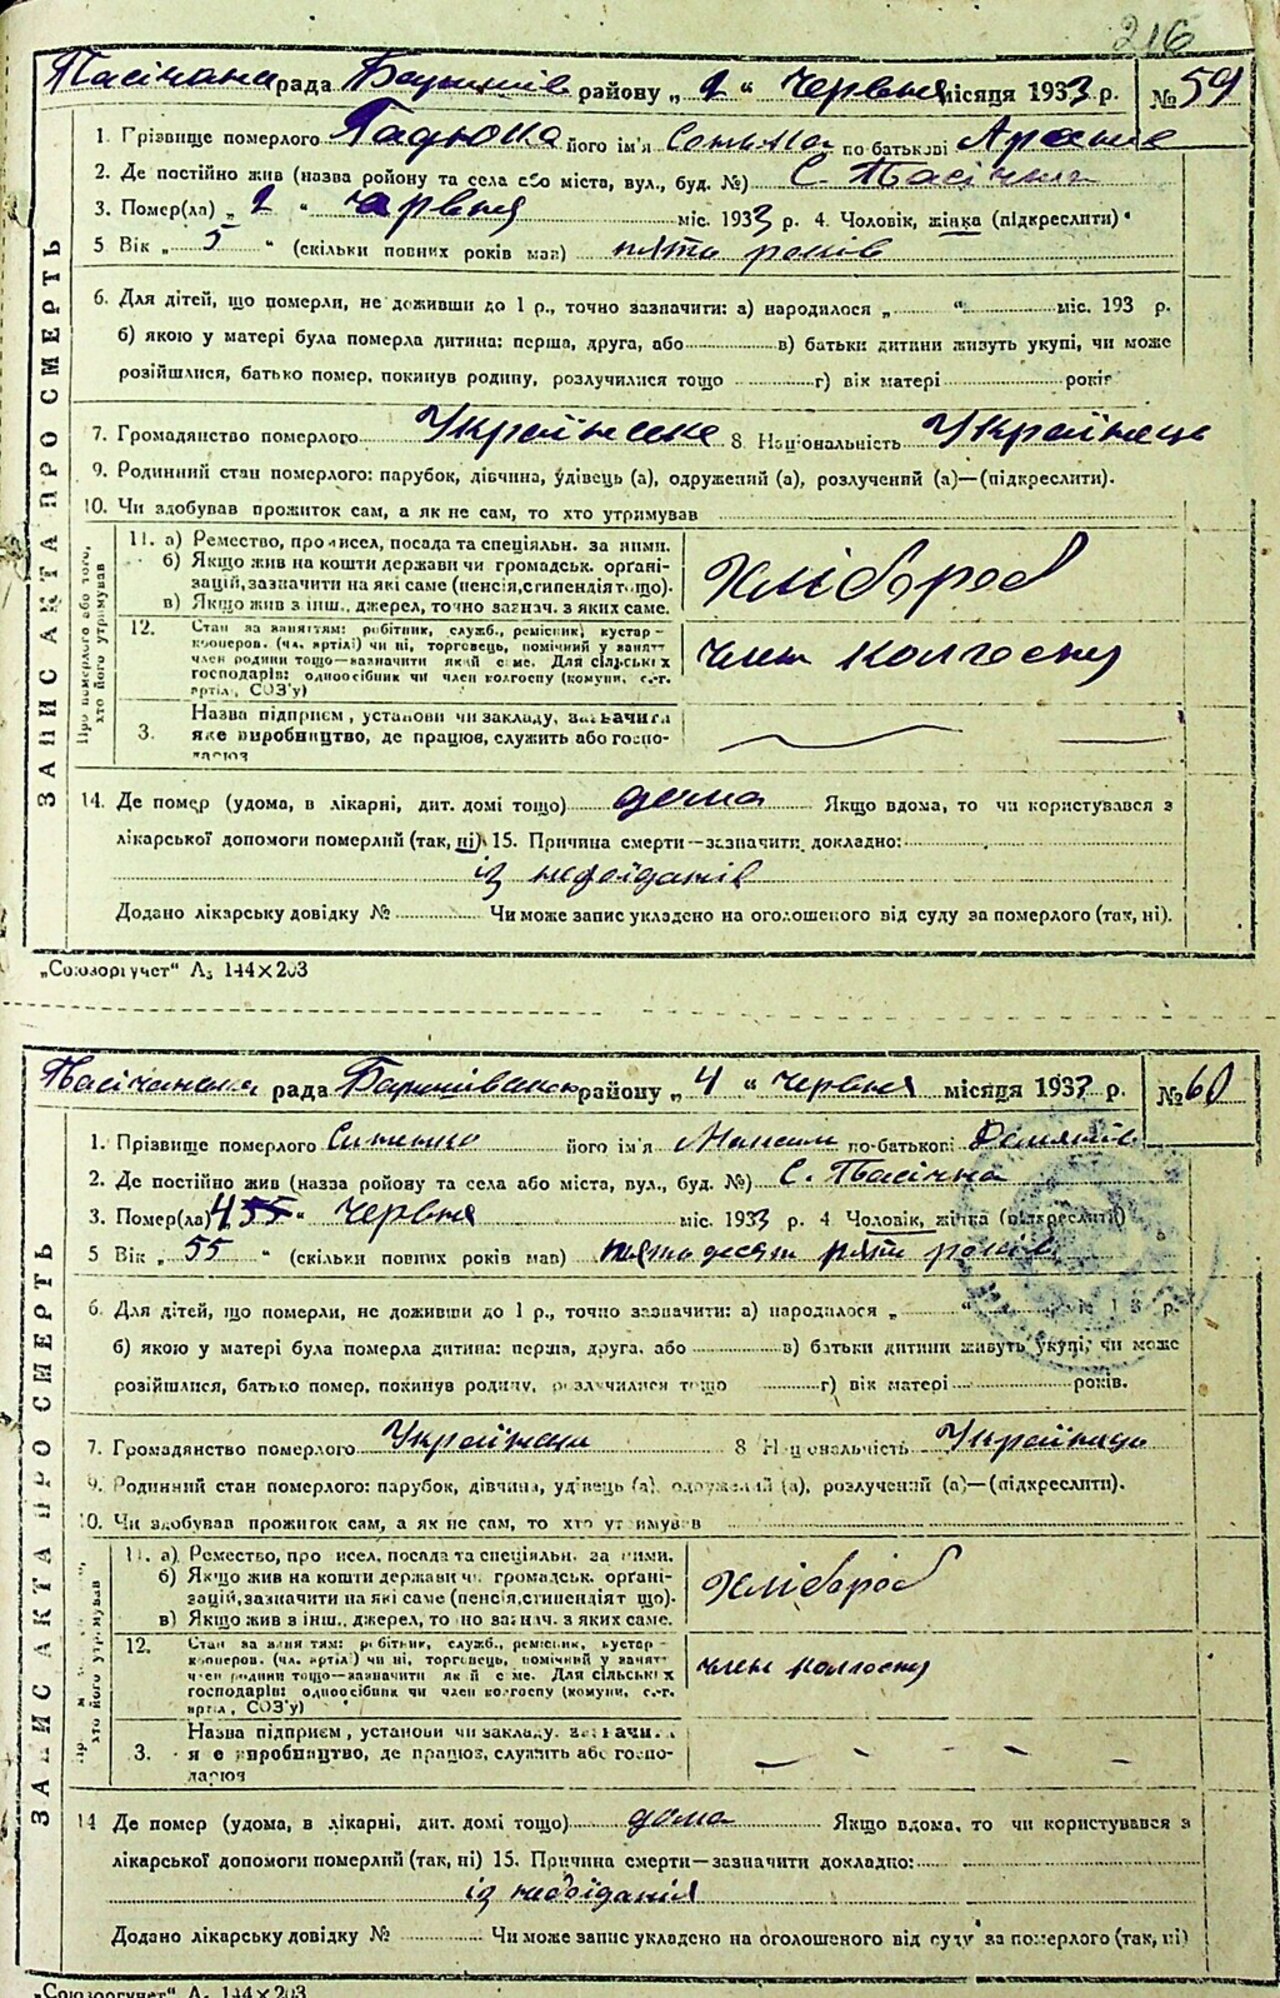 216
Пасічана рада Баришів району „ 2 “ Червня місяця 1933 р. № 59
1. Прізвище померлого його ім'я по батькові
2. Де постійно жив (назва ройону та села або міста, вул., буд. №) С. Пасічна
3. Помер(ла) „ 2 “ Червня міс. 1933 р. 4. Чоловік, жінка (підкреслити)
5 Вік „ 5 “ (скільки повних років мав) пять років
6. Для дітей, що померли, не доживши до 1 р., точно зазначити: а) народилося „ “ міс. 193 р.
б) якою у матері була померла дитина: перша, друга, або в) батьки дитини живуть укупі, чи може
розійшлися, батько помер, покинув родину, розлучилися тощо г) вік матері років
7. Громадянство померлого Українське 8 Національність Українець
9. Родинний стан померлого: парубок, дівчина, удівець (а), одружений (а), розлучений (а)—(підкреслити).
10. Чи здобував прожиток сам, а як не сам, то хто утримував
ЗАПИС АКТА ПРО СМЕРТЬ
Про померлого або того, хто його утримував
11. а) Ремество, промисел, посада та спеціяльн. за ними.
б) Якщо жив на кошти держави чи громадськ. органі-
зацій, зазначити на які саме (пенсія, стипендія тощо).
в) Якщо жив з інш., джерел, точно зазнач. з яких саме.
Хлібороб
12. Стан за заняттям: робітник, служб., ремісник, кустар-
кооперов. (чл. артілі) чи ні, торговець, помічний у занятт
член родини тощо—зазначити який саме. Для сільських
господарів: одноосібник чи член колгоспу (комуни, с.-г.
артіл, СОЗ'у)
член колгоспу
3. Назва підприєм, установи чи закладу, зазначити
яке виробництво, де працює, служить або госпо-
дарює
14. Де помер (удома, в лікарні, дит. домі тощо) дома Якщо вдома, то чи користувався з
лікарської допомоги померлий (так, ні) 15. Причина смерти—зазначити докладно:
із недоїданів
Додано лікарську довідку № Чи може запис укладено на оголошеного від суду за померлого (так, ні).
„Союзоргучет“ А₅ 144×203
Пасічанська рада Баришівськ району „ 4 “ Червня місяця 1933 р. № 60
1. Прізвище померлого його ім'я Максим по-батькові
2. Де постійно жив (назва ройону та села або міста, вул., буд. №) С. Пасічна
3. Помер(ла) 4 55 “ Червня міс. 1933 р. 4 Чоловік, жінка (підкреслити)
5 Вік „ 55 “ (скільки повних років мав) пятьдесят пять років
6. Для дітей, що померли, не доживши до 1 р., точно зазначити: а) народилося „ “ р.
б) якою у матері була померла дитина: перша, друга, або в) батьки дитини живуть укупі, чи може
розійшлися, батько помер, покинув родину, розлучилися тощо г) вік матері років.
7. Громадянство померлого 8 Національність Українець
9. Родинний стан померлого: парубок, дівчина, удівець (а), одружений (а), розлучений (а)—(підкреслити).
10. Чи здобував прожиток сам, а як не сам, то хто утримував
ЗАПИС АКТА ПРО СМЕРТЬ
хто його утримував
11. а) Ремество, про исел, посада та спеціяльн. за ними.
б) Якщо жив на кошти держави чи громадськ. органі-
зацій, зазначити на які саме (пенсія, стипендія тощо).
в) Якщо жив з інш., джерел, точно зазнач. з яких саме.
Хлібороб
12. Стан за заняттям: робітник, служб., ремісник, кустар-
кооперов. (чл. артілі) чи ні, торговець, помічний у занятт
член родини тощо—зазначити який саме. Для сільських
господарів: одноосібник чи член колгоспу (комуни, с.-г.
артіл, СОЗ'у)
член колгоспу
3. Назва підприєм, установи чи закладу, зазначи
яке виробництво, де працює, служить або госпо-
дарює
14 Де помер (удома, в лікарні, дит. домі тощо) дома Якщо вдома, то чи користувався з
лікарської допомоги померлий (так, ні) 15. Причина смерти—зазначити докладно:
із недоїдання
Додано лікарську довідку № Чи може запис укладено на оголошеного від суду за померлого (так, ні)
„Союзоргучет“ А₅ 144×203